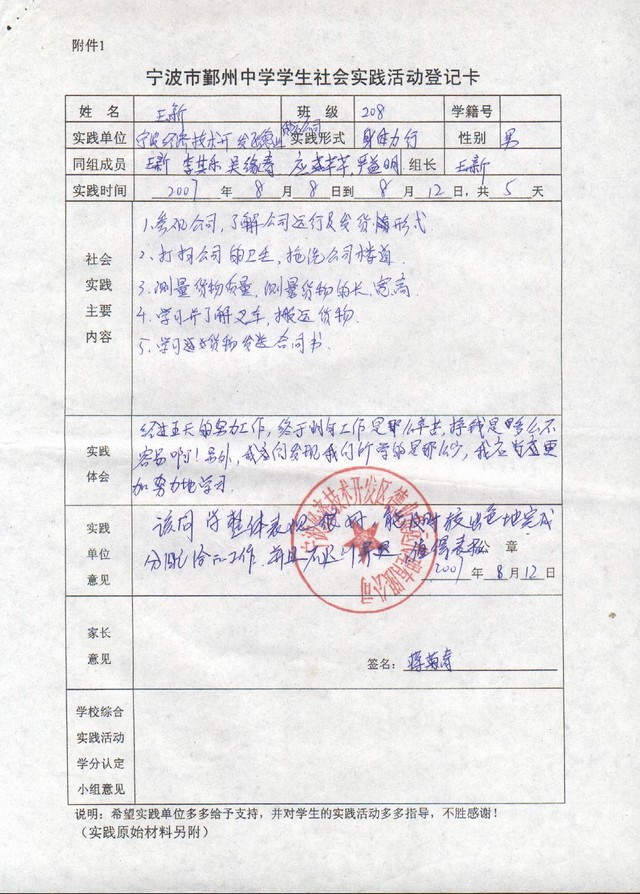 附件1
宁波市鄞州中学学生社会实践活动登记卡
姓 名 王新 班 级 208 学籍号
实践单位 宁波经济技术开发区 实践形式 身体力行 性别 男
同组成员 王新 李其乐 吴缘寿 组长 王新
实践时间 2007 年 8 月 8 日到 8 月 12 日，共 5 天
社会
实践
主要
内容
1、参观公司，了解公司运行及发货形式.
2、打扫公司的卫生，拖洗公司楼道.
3、测量货物质量，测量货物的长，宽，高.
4、学习并了解叉车，搬运货物.
5、学习货物发送合同书.
实践
体会
经过五天的努力工作，终于明白工作是那么辛苦，挣钱是多么不
容易啊！另外，我真的发现我们所学的是那么少，我应当更
加努力地学习.
实践
单位
意见
该同学整体表现很好，能及时较出色地完成
分配给的工作，并且 值得表扬
公 章
2007 年 8 月 12 日
家长
意见
签名：蒋菊寿
学校综合
实践活动
学分认定
小组意见
说明：希望实践单位多多给予支持，并对学生的实践活动多多指导，不胜感谢！
（实践原始材料另附）